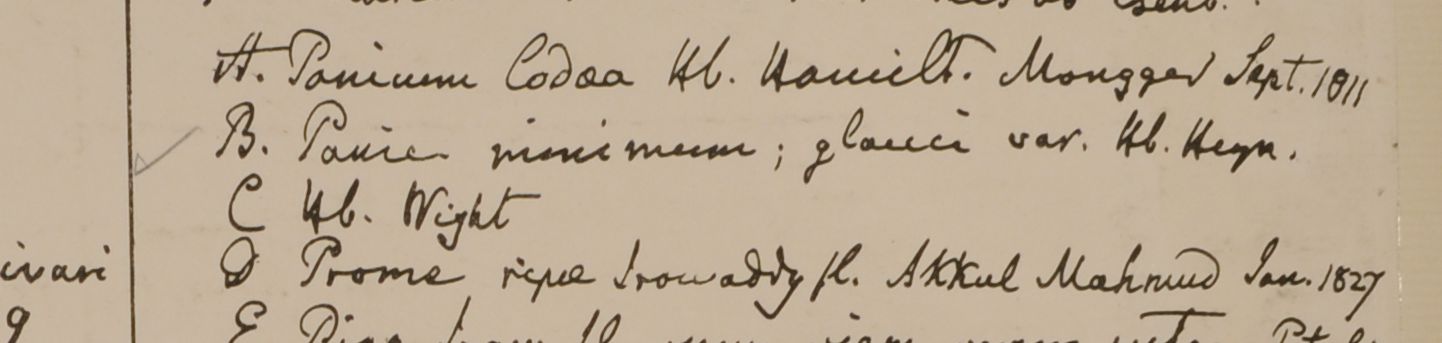 A. Panicum Codaa Hb. Hamilt. Mongger Sept. 1811
B. Panic. minimum; glauci var. Hb. Heyn.
C Hb. Wight
ivari D Prome ripae Irowaddy fl. Akkul Mahmud Jan. 1827
g E